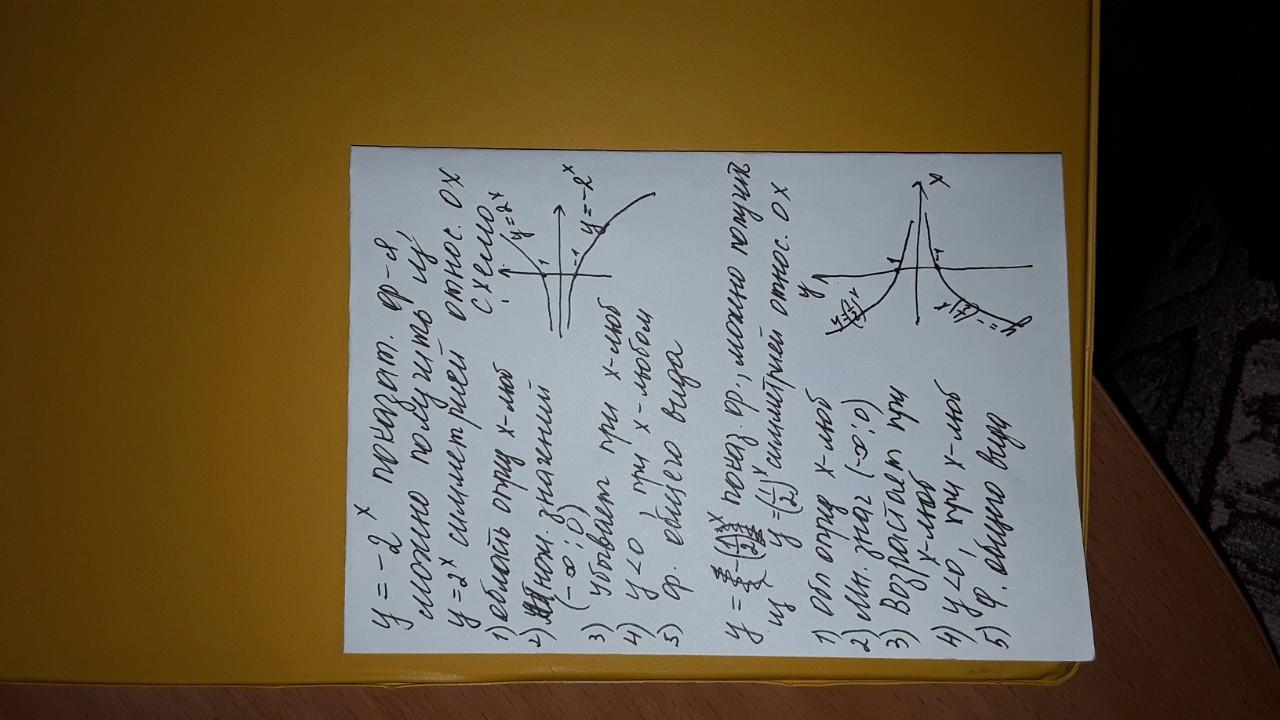 y = -2^x показат. ф-я,
можно получить из
y=2^x симметрией относ. ОХ
схемо
1) область опред х-люб
2) множ. значений
(-∞; 0)
3) убывает при х-люб
4) y<0 при х-любом
5) ф. общего вида
y
y=2^x
1
-1
y=-2^x
y = -(1/2)^x показ. ф., можно получить
из y=(1/2)^x симметрией относ. ОХ
1) обл опред х-люб
2) Мн. знач (-∞; 0)
3) Возрастает при
х-люб
4) y<0, при х-люб
5) ф. общего вида
y
y=(1/2)^x
1
-1
x
y=-(1/2)^x